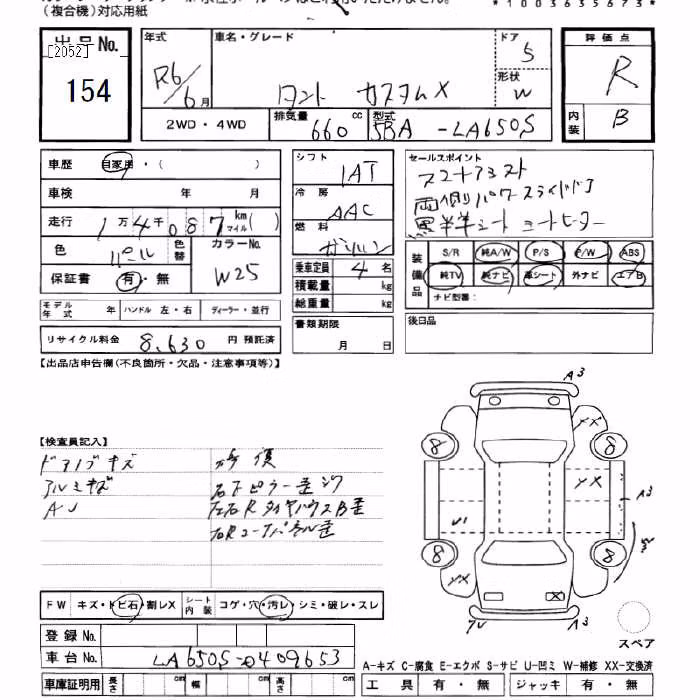 (複合機)対応用紙
*1003635673*
出品No.
[2052]
154
年式
R6/6月
車名・グレード
タント カスタムX
ドア
5
形状
W
評価点
R
内装
B
2WD・4WD
排気量
660
cc
型式
5BA-LA650S
車歴
自家用・( )
車検 年 月
走行
1万4千087
km
マイル
( )
色
パール
色替
カラーNo.
W25
保証書
有・無
モデル年式 年
ハンドル 左・右
ディーラー・並行
リサイクル料金
8,630
円 預託済
シフト
IAT
冷房
AAC
燃料
ガソリン
乗車定員
4名
積載量 kg
総重量 kg
書類期限
月 日
セールスポイント
スマートアシスト
両側パワースライドドア
黒半半シート シートヒーター
装備品
S/R 純A/W P/S P/W ABS
純TV 純ナビ 革シート 外ナビ エアB
ナビ型番:
後日品
【出品店申告欄(不良箇所・欠品・注意事項等)】
【検査員記入】
ドアノブキズ
アルミキズ
AU
右下ピラー歪ジワ
左右RタイヤハウスB歪
右Rコーナーパネル歪
A3
XX
8
8
YX
A3
U1
8
8
XX
A3
スペア
FW
キズ・トビ石・割レX
シート内装
コゲ・穴・汚レ・シミ・破レ・スレ
登録No.
車台No.
LA650S-0409653
車庫証明用
長さ cm
幅 cm
高さ cm
A-キズ C-腐食 E-エクボ S-サビ U-凹ミ W-補修 XX-交換済
工具 有・無
ジャッキ 有・無